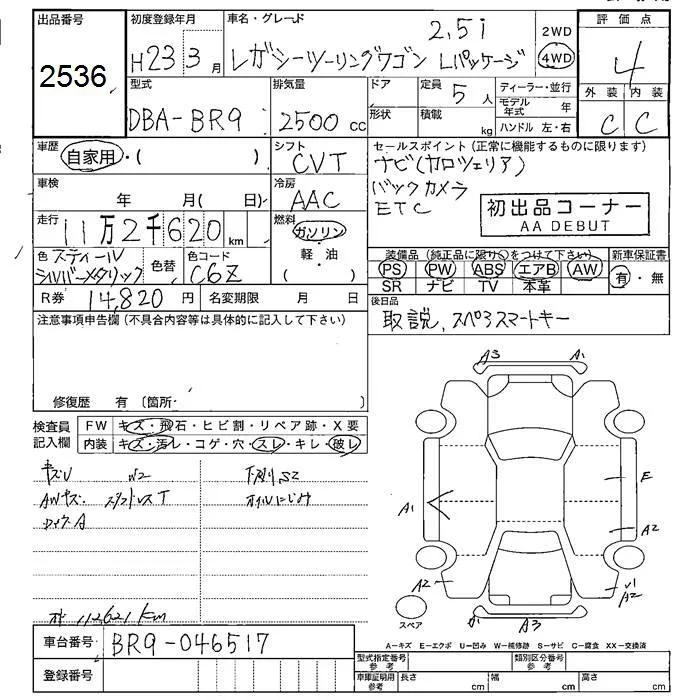 出品番号
2536
初度登録年月
H23 3月
車名・グレード
2.5i
レガシーツーリングワゴン Lパッケージ
2WD
4WD
評価点
4
外装 内装
C C
型式
DBA-BR9
排気量
2500cc
ドア
形状
定員 5人
積載 kg
ディーラー・並行
モデル年式 年
ハンドル 左・右
車歴
自家用・( )
シフト
CVT
セールスポイント(正常に機能するものに限ります)
ナビ(カロッツェリア)
バックカメラ
ETC
初出品コーナー
AA DEBUT
車検
年 月( 日)
冷房
AAC
走行
11万2千620km
燃料
ガソリン
軽・油
( )
色 スティール
シルバーメタリック
色替
色コード
C6Z
装備品(純正品に限り○をつけて下さい)
PS PW ABS エアB AW
SR ナビ TV 本革
新車保証書
有・無
R券 14,820円
名変期限 月 日
後日品
取説、スペアスマートキー
注意事項申告欄(不具合内容等は具体的に記入して下さい)
修復歴 有 〔箇所
検査員
記入欄
FW キズ・飛石・ヒビ割・リペア跡・X要
内装 キズ・汚レ・コゲ・穴・スレ・キレ・破レ
キズU W2 下廻りS2
AWキズ スタッドレスT オイルにじみ
112621km
A3 A1
E
A1
A2
A2
A2
A3
スペア
車台番号 BR9-046517
登録番号
A－キズ E－エクボ U－凹み W－補修跡 S－サビ C－腐食 XX－交換済
型式指定番号
参考
類別区分番号
参考
車庫証明用
参考
長さ cm 幅 cm 高さ cm